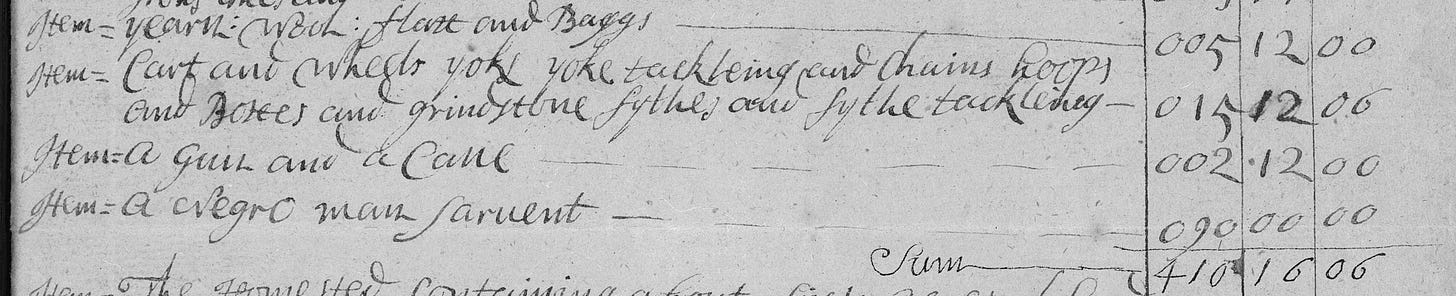 Item= yearn: wooll: flax and Baggs 005 12 00
Item= Cart and wheels yoks yoke tackleing and Chains hoops
and Boxes and grindstone sythes and sythe tackleing 015 12 06
Item= a Gun and a Cane 002 12 00
Item= a Negro man sarvent 090 00 00
Sum 410 16 06
Item= The Homested Containing about